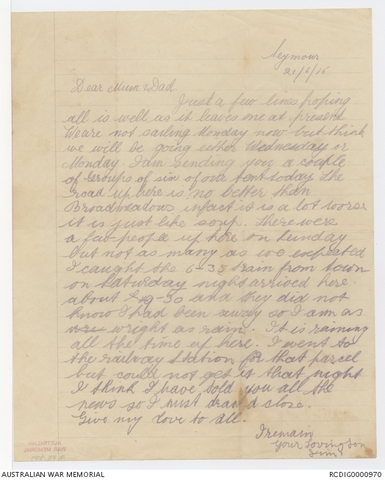 Seymour
21/6/15
Dear Mum & Dad
Just a few lines hoping
all is well as it leaves me at present
We are not sailing Monday now but think
we will be going either Wednesday or
Monday I am sending you a couple
of Groups of six of our tent today the
road up here is no better than
Broadmeadows infact it is a lot worse
it is just like soup. There were
a few people up here on Sunday
but not as many as we expected
I caught the 6-35 train from town
on Saturday night arrived here
about and they did not
know I had been away so I am as
wright as rain. It is raining
all the time up here. I went to
the railway station for that parcel
but could not get it that night
I think I have told you all the
news so I must draw a close.
Give my love to all.
I remain
Your Loving Son
AUSTRALIAN WAR MEMORIAL
RCDIG0000970